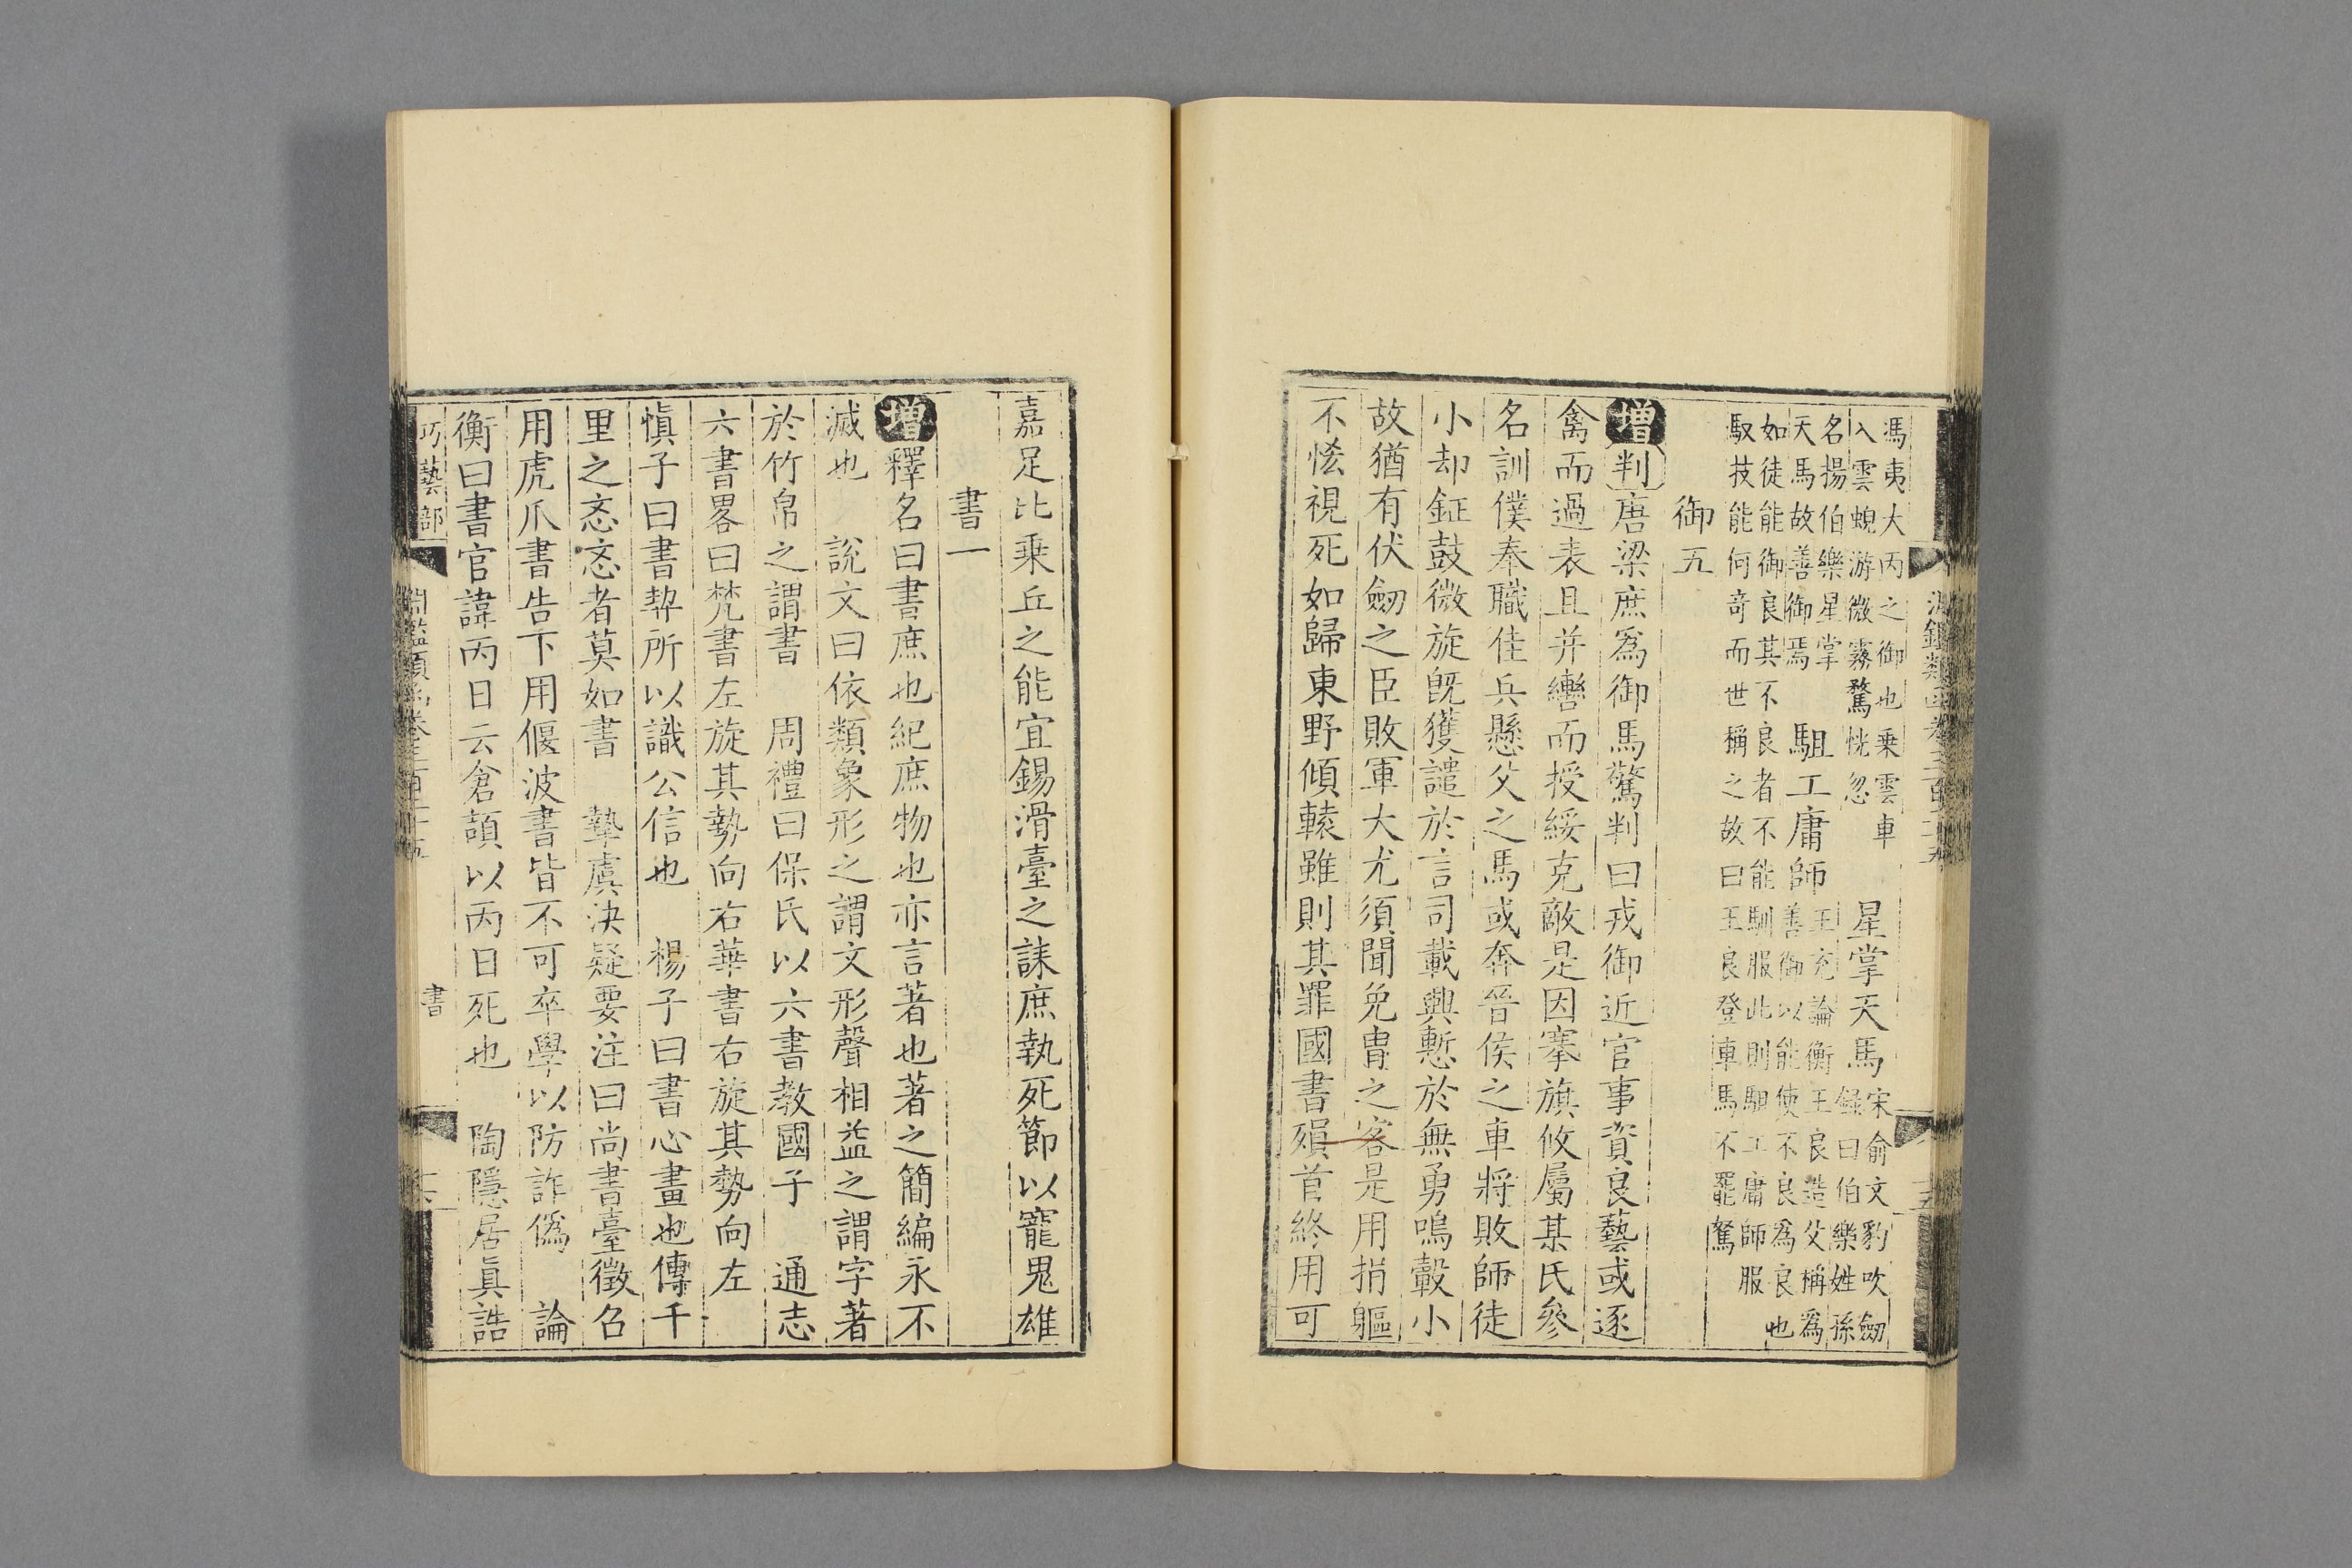 馮夷大丙之御也乘雲車
入雲蜺游微霧騖恍忽
星掌天馬
宋俞文豹吹劒
錄曰伯樂姓孫
名揚伯樂星掌
天馬故善御焉
駔工庸師
王充論衡王良造父稱爲
善御以能使不良爲良也
如徒能御良其不良者不能馴服此則駔工庸師服
馭技能何奇而世稱之故曰王良登車馬不罷駑
御五
增判唐梁庶爲御馬驚判曰戎御近官事資良藝或逐
禽而過表且并轡而授綏克敵是因搴旗攸屬某氏參
名訓僕奉職佳兵懸父之馬或奔晉侯之車將敗師徒
小却鉦鼓微旋旣獲譴於言司載輿慙於無勇鳴轂小
故猶有伏劒之臣敗軍大尤須聞免胄之客是用捐軀
不恡視死如歸東野傾轅雖則其罪國書殞首終用可
嘉足比乘丘之能宜錫滑臺之誄庶執死節以寵鬼雄
書一
增釋名曰書庶也紀庶物也亦言著也著之簡編永不
滅也　說文曰依類象形之謂文形聲相益之謂字著
於竹帛之謂書　周禮曰保氏以六書敎國子　通志
六書畧曰梵書左旋其勢向右華書右旋其勢向左
愼子曰書契所以識公信也　楊子曰書心畫也傳千
里之忞忞者莫如書　摯虞決疑要注曰尚書臺徵召
用虎爪書告下用偃波書皆不可卒學以防詐僞　論
衡曰書官諱丙日云倉頡以丙日死也　陶隱居眞誥
巧藝部
書